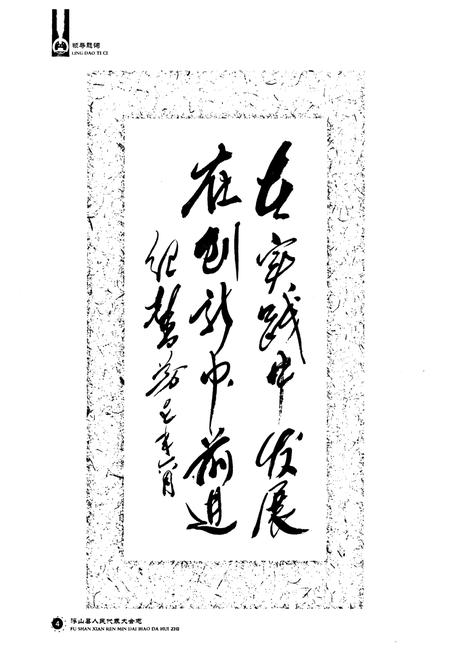 领导题词
LING DAO TI CI
在实践中发展
在创新中前进
纪馨芳
七年六月
4
浮山县人民代表大会志
FU SHAN XIAN REN MIN DAI BIAO DA HUI ZHI